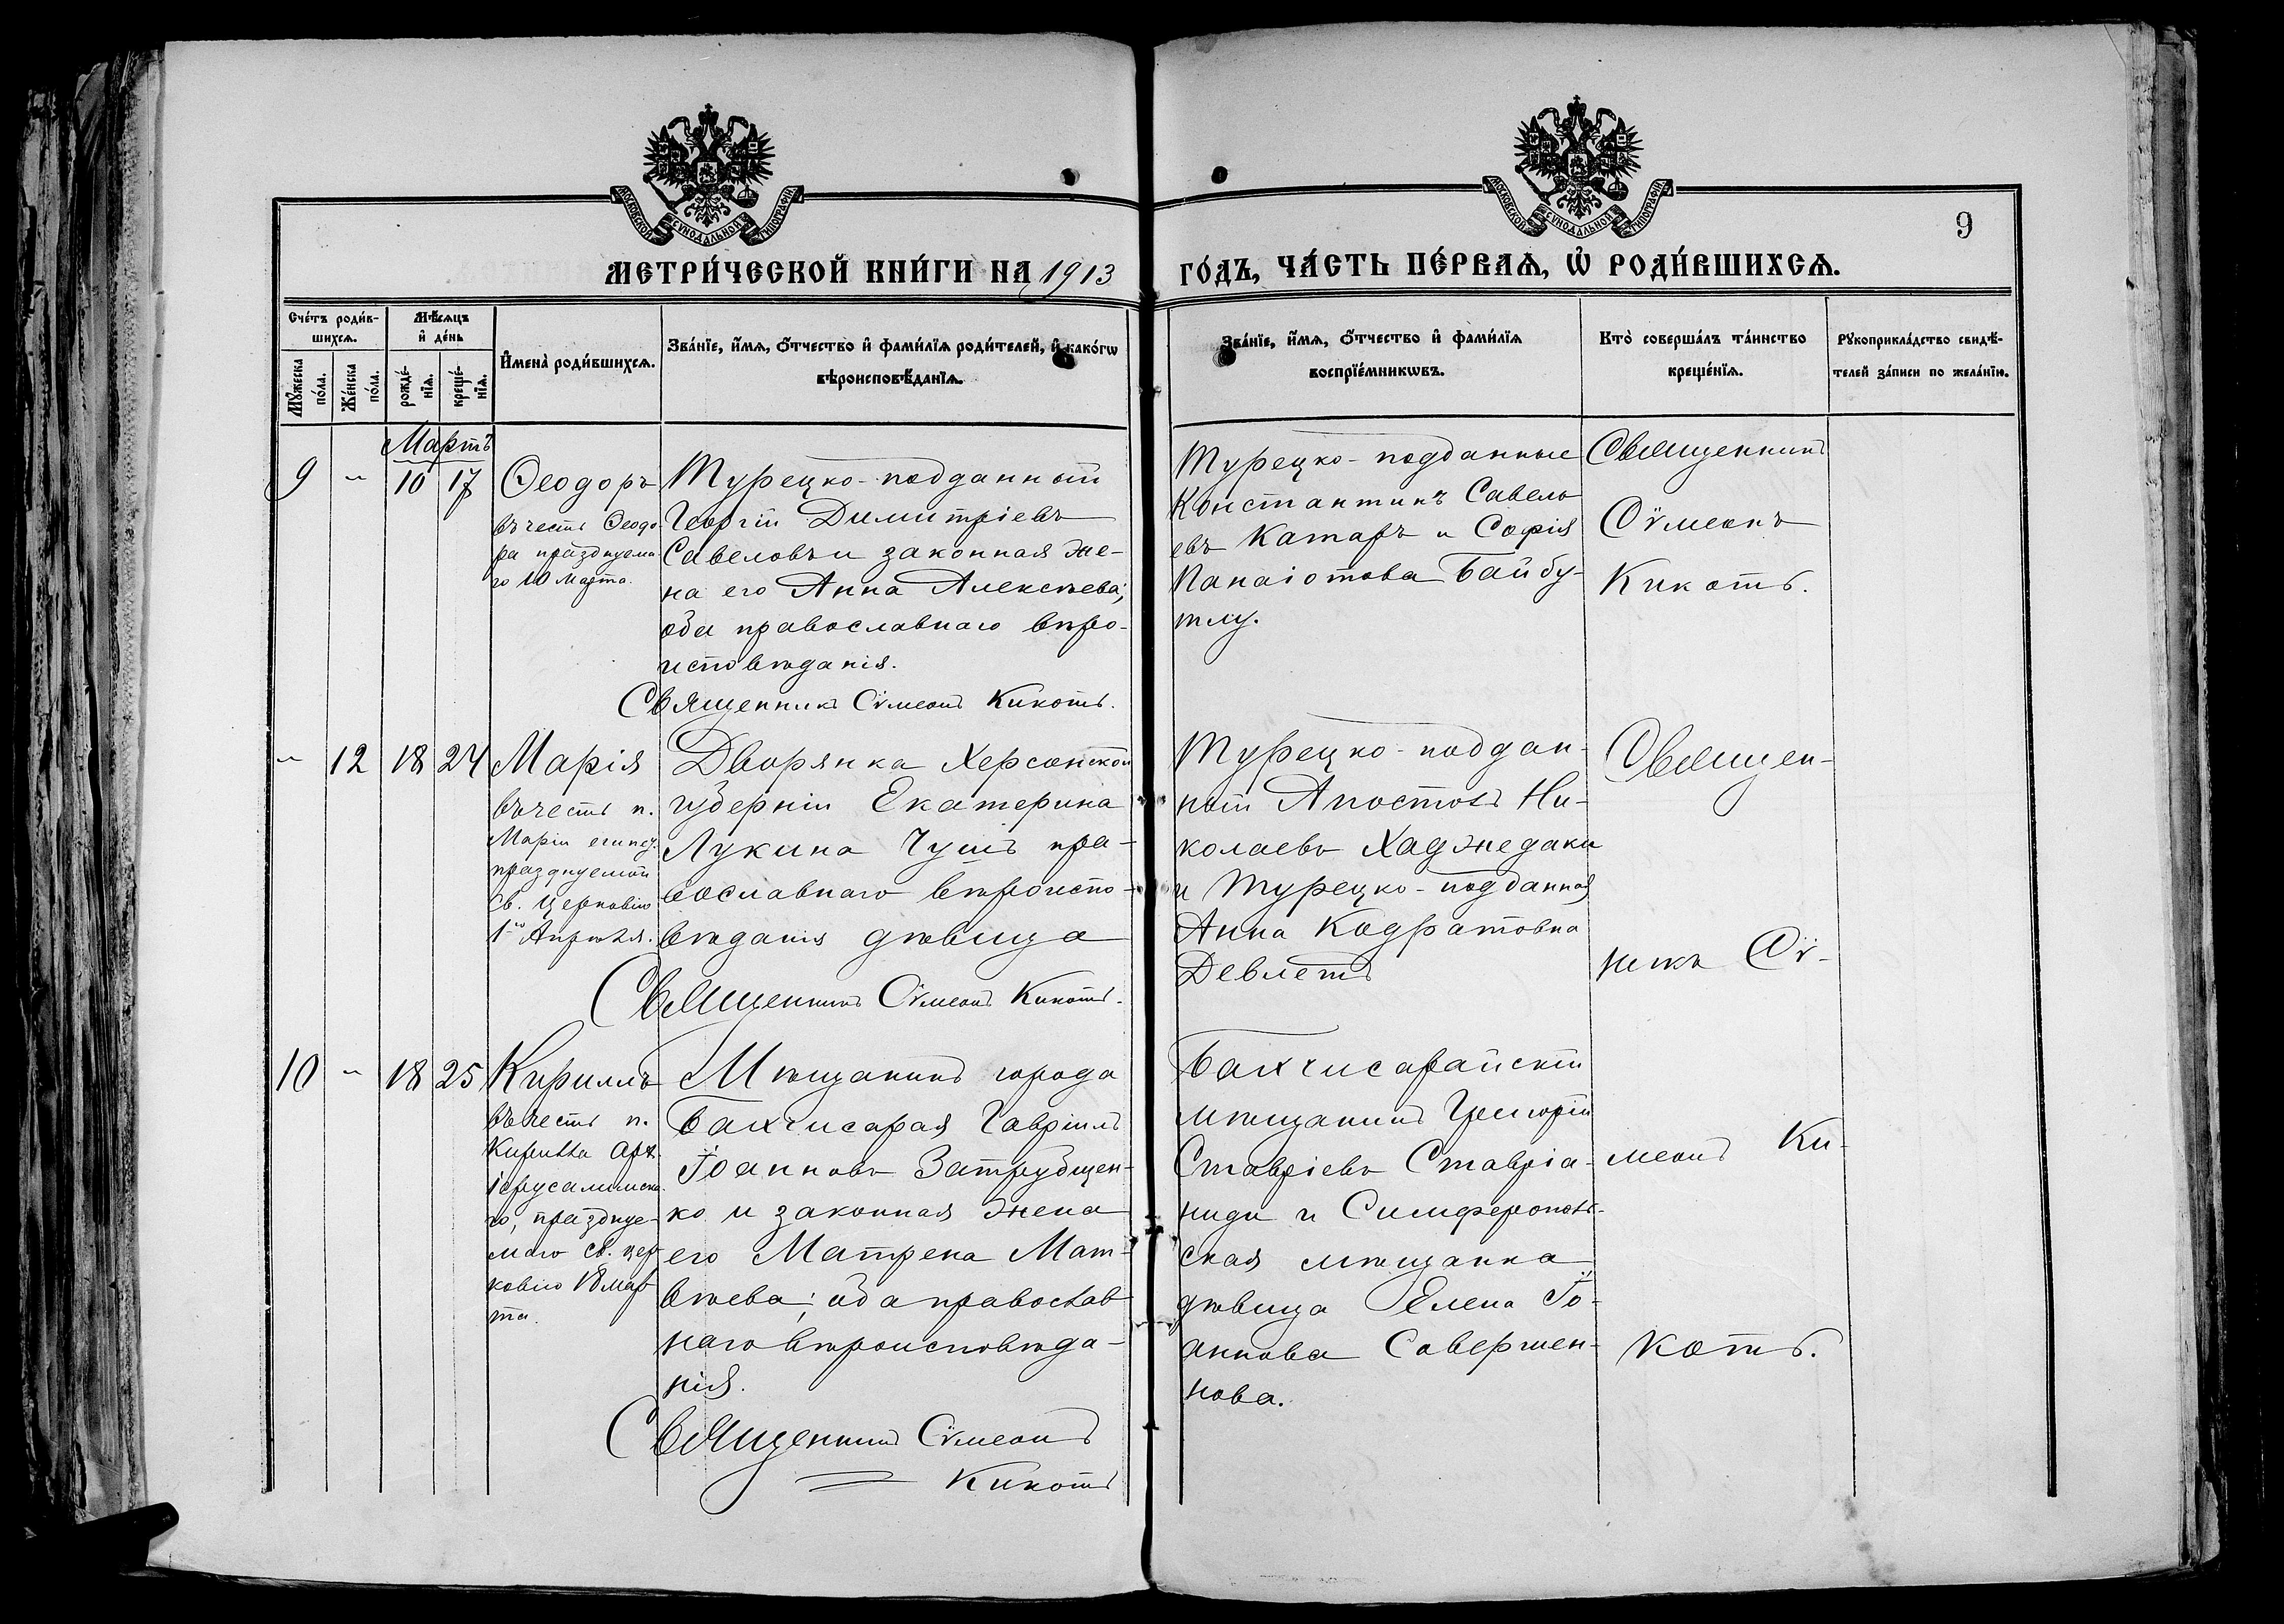 МОСКОВСКОЙ СѴНОДАЛЬНОЙ ТИПОГРАФІИ
МОСКОВСКОЙ СѴНОДАЛЬНОЙ ТИПОГРАФІИ
9
МЕТРИ́ЧЕСКОЙ КНИ́ГИ НА 1913
ГО́ДЪ, ЧА́СТЬ ПЕ́РВАѦ, Ѡ҆ РОДИ́ВШИХСѦ.
Сче́тъ роди́в-
шихсѧ.
Мꙋ́жеска
по́ла.
Же́нска
по́ла.
Мѣ́сѧцъ
и҆ де́нь
рожде́-
нїѧ.
креще́-
нїѧ.
И҆мена̀ роди́вшихсѧ.
Зва́нїе, и҆́мѧ, ѻ҆́тчество и҆ фамилі́ѧ роди́телей, и҆ како́гѡ
вѣроисповѣ́данїѧ.
Зва́нїе, и҆́мѧ, ѻ҆́тчество и҆ фами́лїѧ
воспрїе́мникѡвъ.
Кто̀ соверша́лъ та́инство
креще́нїѧ.
Рꙋкоприкла́дство свидѣ́-
телей за́писи по жела́нїю.
Мартъ
9 " 10 17
Ѳеодоръ
въ честь Ѳеодо-
ра празднуема-
го 10 марта.
Турецко-подданный
Георгій Димитріевъ
Савеловъ и законная же-
на его Анна Алексѣева;
оба православнаго вѣро-
исповѣданія.
Священникъ Сѵмеонъ Кикоть.
Турецко-подданные
Константинъ Савель
евъ Катаръ и Софія
Панаіотова Байбу-
тлу.
Священникъ
Сѵмеонъ
Кикоть.
" 12 18 24
Марія
въ честь п.
Маріи египет.
празднуемой
св. церковію
1го Апрѣля.
Дворянка Херсонской
губерніи Екатерина
Лукина Чушъ пра-
вославнаго вѣроиспо-
вѣданія дѣвица
Священникъ Сѵмеонъ Кикоть.
Турецко-поддан-
ный Апостолъ Ни-
колаевъ Хаджедаки
и турецко-подданная
Анна Кодратовна
Девлетъ
Священ-
никъ Сѵ-
10 " 18 25
Кириллъ
въ честь п.
Кирилла Арх.
іерусалимска-
го, праздnуе-
маго св. цер
ковію 18 мар
та.
Мѣщанинъ города
Бахчисарая Гавріилъ
Іоанновъ Затрубщен-
ко и законная жена
его Матрена Мат-
вѣева; оба православ
наго вѣроисповѣда-
нія.
Священникъ Сѵмеонъ
Кикоть
Бахчисарайскій
мѣщанинъ Григорій
Ставріевъ Ставріа-
ниди и Симферополь-
ская мѣщанка
дѣвица Елена Іо-
аннова Совершен-
нова.
меонъ Ки-
коть.